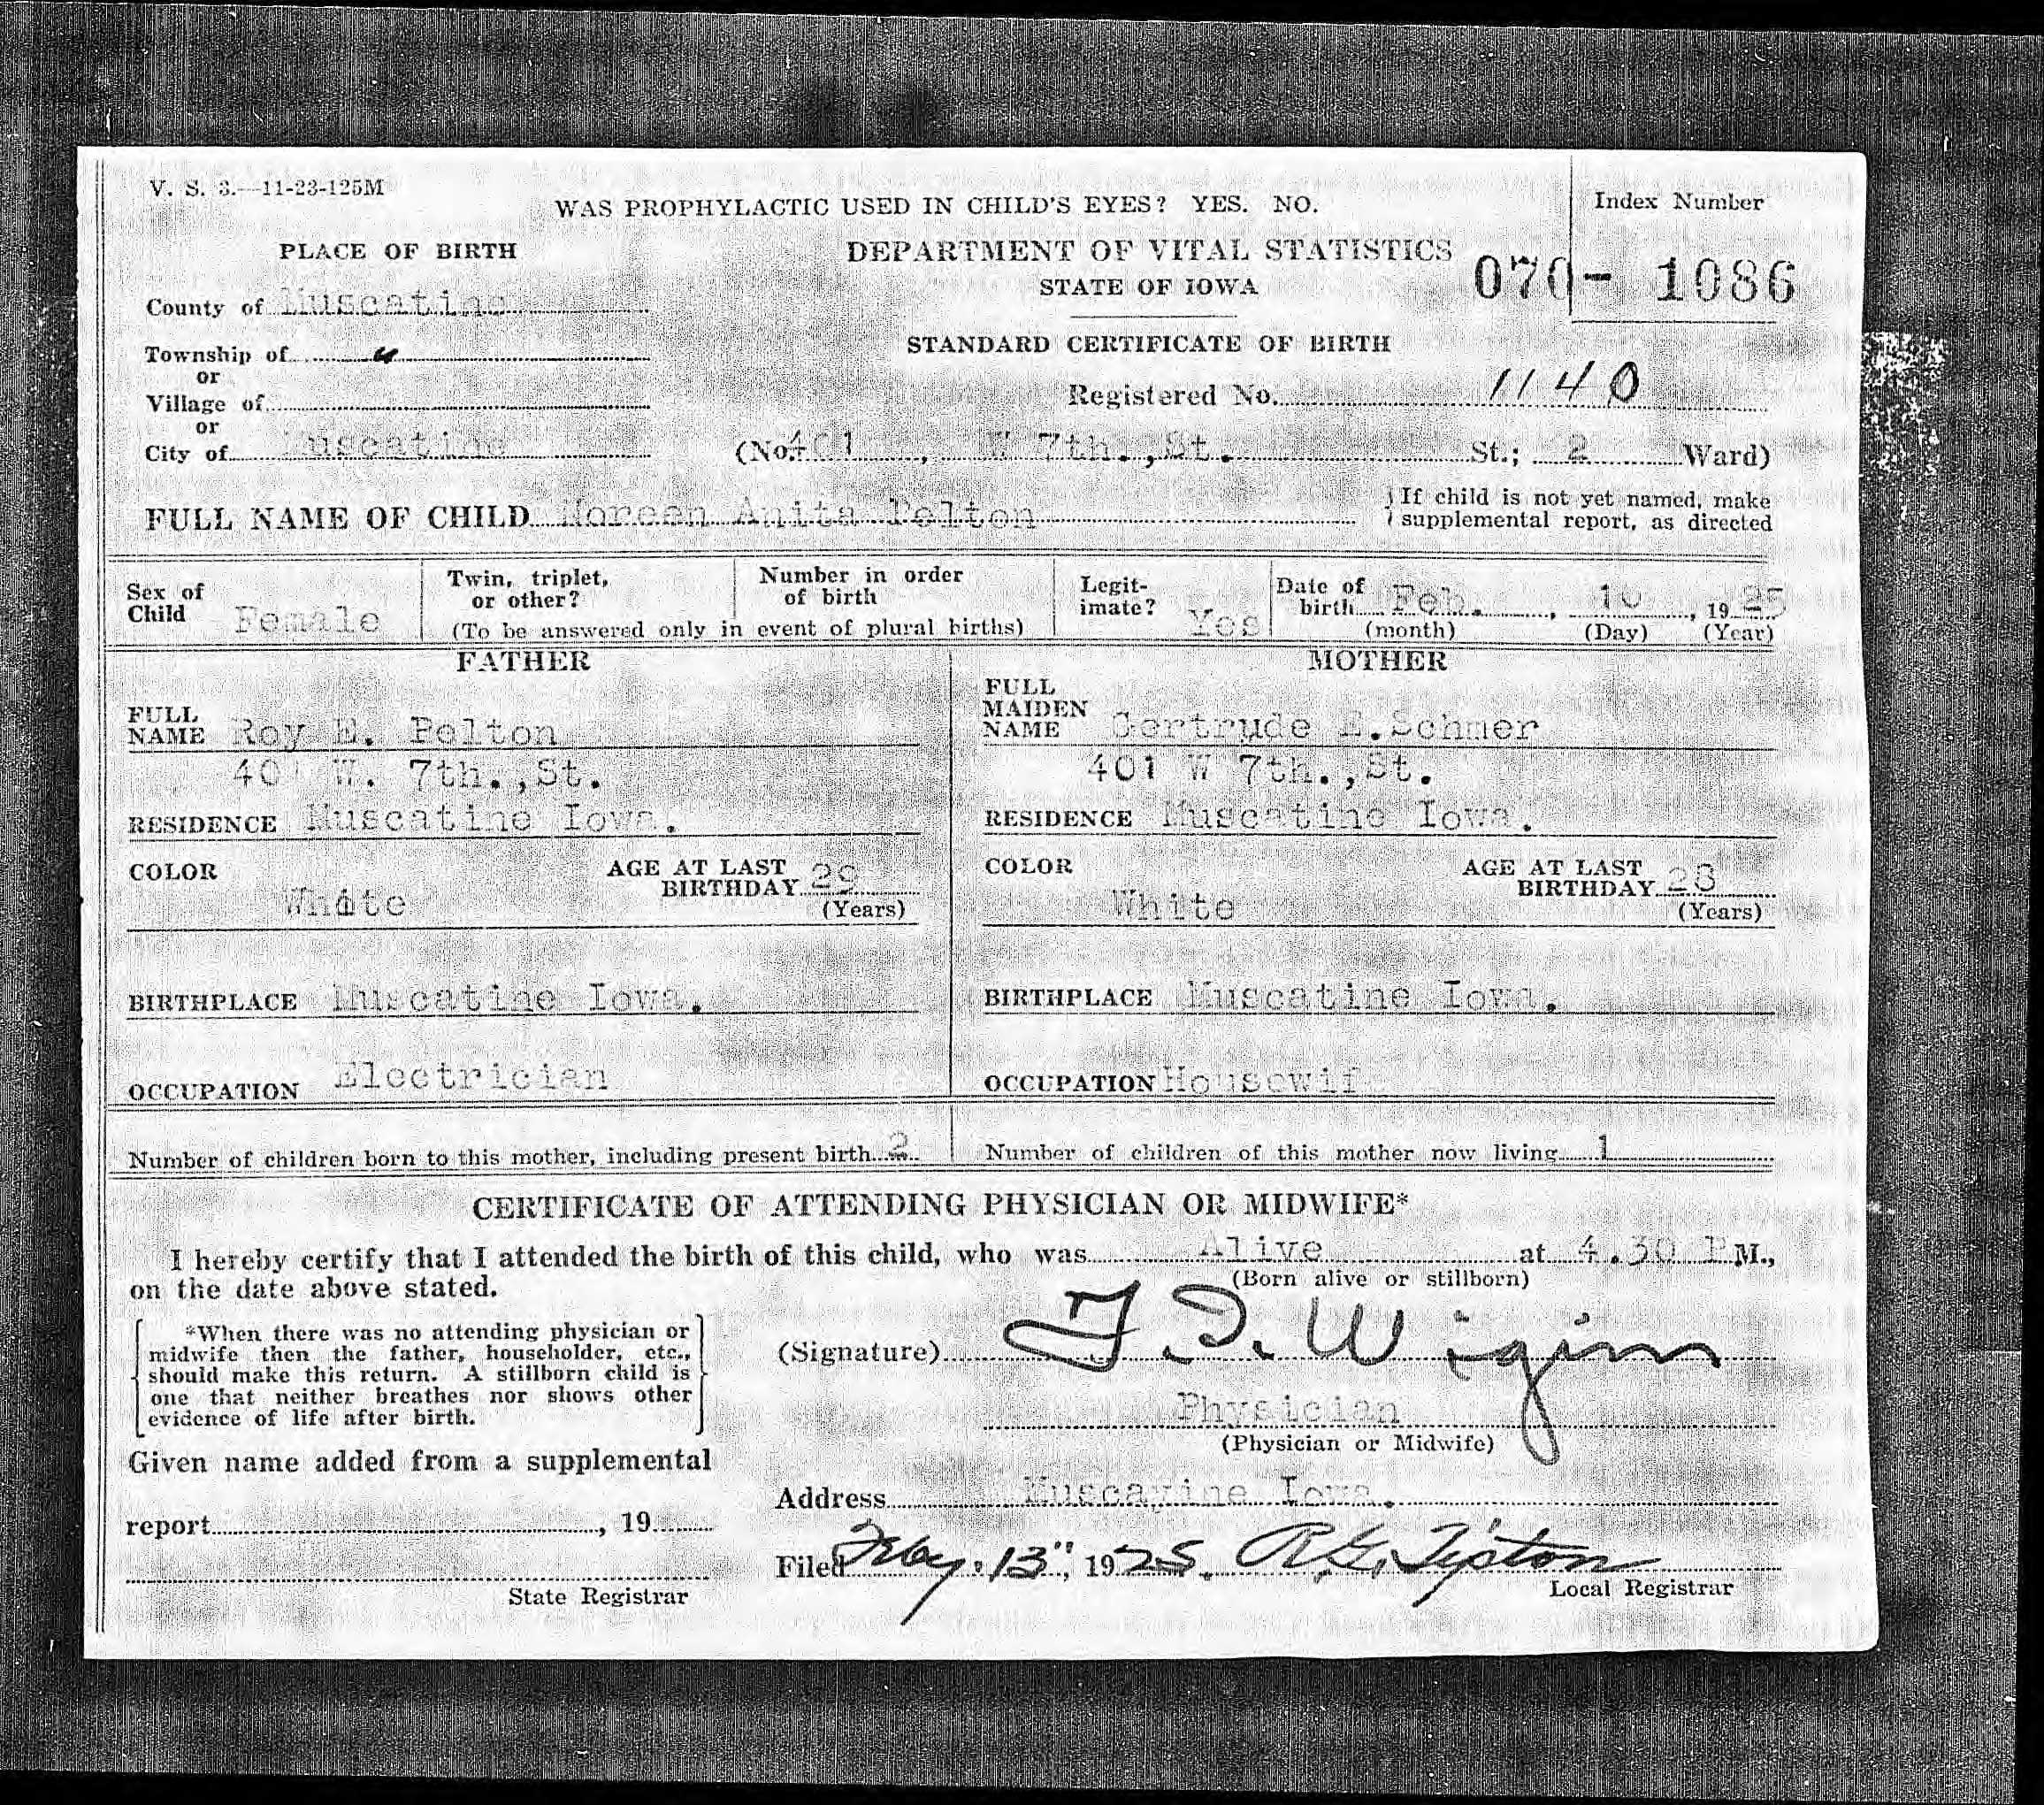 V. S. 3.—11-23-125M
WAS PROPHYLACTIC USED IN CHILD'S EYES? YES. NO.
Index Number
PLACE OF BIRTH
DEPARTMENT OF VITAL STATISTICS
STATE OF IOWA
070- 1086
County of Muscatine
STANDARD CERTIFICATE OF BIRTH
Township of "
or
Registered No. 1140
Village of
or
City of Muscatine (No. 401, W 7th.,St. St.; 2 Ward)
FULL NAME OF CHILD Noreen Anita Pelton
If child is not yet named, make
supplemental report, as directed
Sex of Child Female
Twin, triplet, or other?
Number in order of birth
(To be answered only in event of plural births)
Legit-imate? Yes
Date of birth Feb., 10, 1925
(month) (Day) (Year)
FATHER
FULL NAME Roy E. Pelton
401 W. 7th.,St.
RESIDENCE Muscatine Iowa.
COLOR White
AGE AT LAST BIRTHDAY 29 (Years)
BIRTHPLACE Muscatine Iowa.
OCCUPATION Electrician
MOTHER
FULL MAIDEN NAME Gertrude E.Schmer
401 W 7th.,St.
RESIDENCE Muscatine Iowa.
COLOR White
AGE AT LAST BIRTHDAY 28 (Years)
BIRTHPLACE Muscatine Iowa.
OCCUPATION Housewif
Number of children born to this mother, including present birth 2
Number of children of this mother now living 1
CERTIFICATE OF ATTENDING PHYSICIAN OR MIDWIFE*
I hereby certify that I attended the birth of this child, who was Alive at 4.30 PM.,
(Born alive or stillborn)
on the date above stated.
*When there was no attending physician or
midwife then the father, householder, etc.,
should make this return. A stillborn child is
one that neither breathes nor shows other
evidence of life after birth.
(Signature) Wiginn
Physician
(Physician or Midwife)
Given name added from a supplemental
report, 19
State Registrar
Address Muscavine Iowa.
Filed 13", 1925. R.G. Tipton
Local Registrar